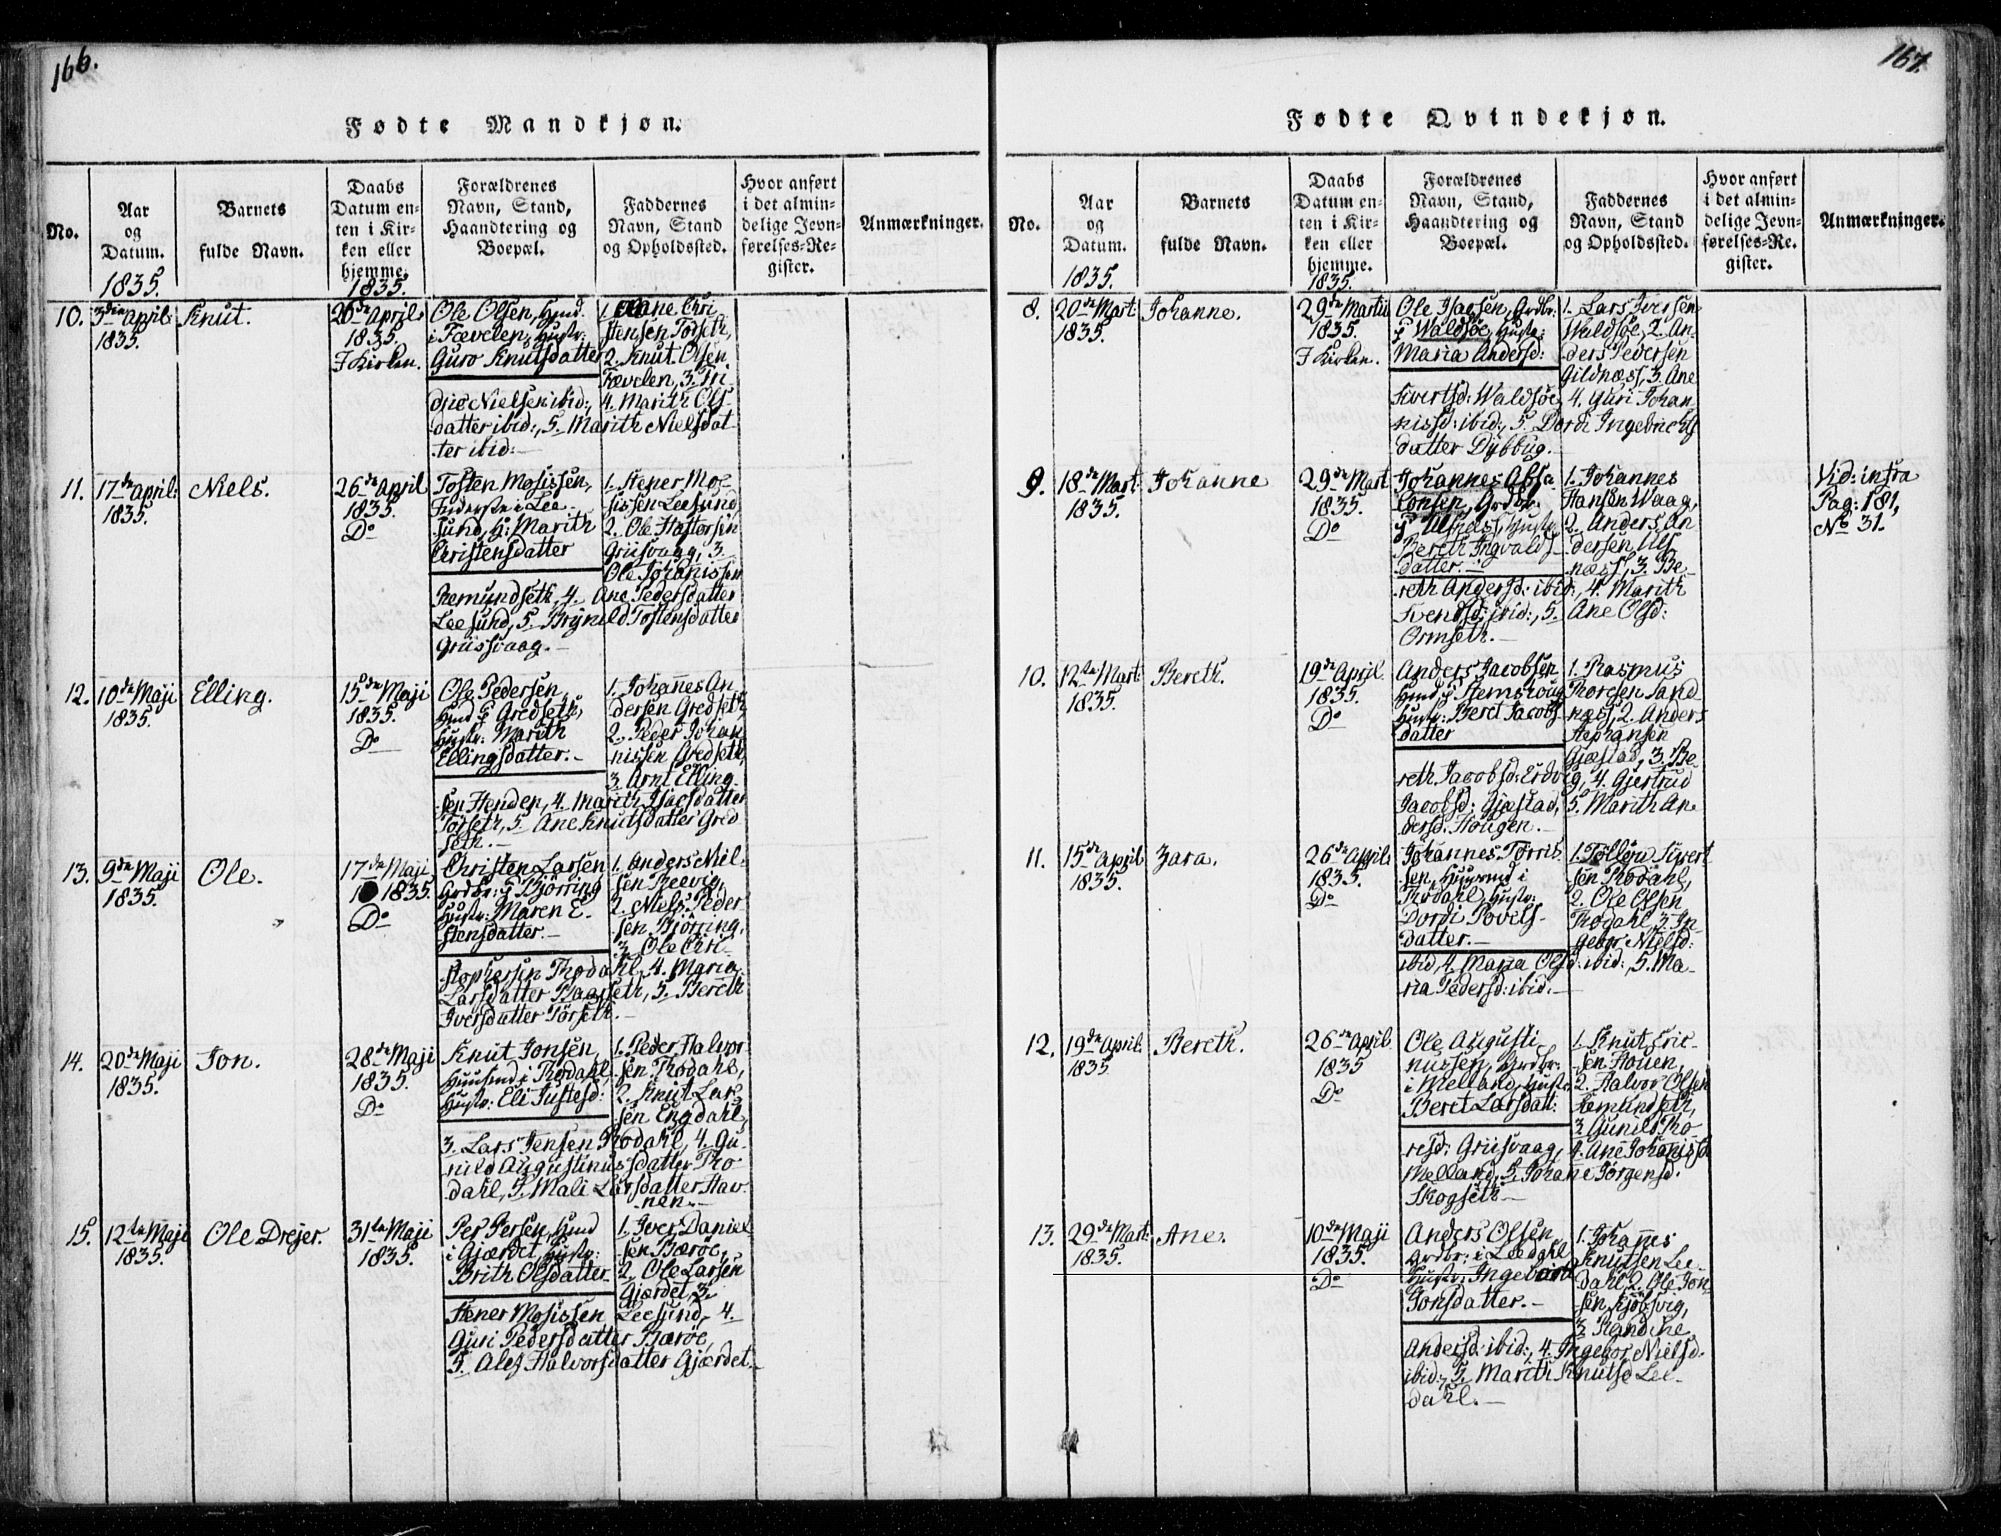 166.
Fødte Mandkjøn.
No.
Aar
og
Datum.
1835.
Barnets
fulde Navn.
Daabs
Datum en-
ten i Kir-
ken eller
hjemme.
1835.
Forældrenes
Navn, Stand,
Haandtering og
Boepæl.
Faddernes
Navn, Stand
og Opholdssted.
Hvor anført
i det almin-
delige Jevn-
førelses-Re-
gister.
Anmærkninger.
10.
3die april
1835.
Knut.
20de april
1835.
I Kirken.
Ole Olsen, Huusmd.
i Fævelen, Hustr:
Guro Knutsdatter
1. Ane Chri
stensen Torseth,
2. Knut Olsen
Fævelen, 3.
Nielsen ibid:, 4. Marith Ols
datter ibid:, 5. Marith Nielsdat
ter ibid:
11.
17de april:
1835.
Niels.
26de april
1835.
Do
Tosten Mosissen,
Inderste i Lee-
sund, H: Marith
Christensdatter
1. Stener Mo-
sissen Leesund
2. Ole Hastorsen
Griisvaag, 3.
Ole Johanissen
Remundseth, 4. Ane Pedersdatter
Leesund, 5. Brynild Tostensdatter
Griisvaag.
12.
10de Maji
1835.
Elling.
15de Maji
1835.
Do
Ole Pedersen,
Hmd. i Gredseth,
Hustr: Marith
Ellingsdatter.
1. Johanes An
dersen Gredseth,
2. Peder Johan
nissen Gredseth,
3. Arnt Elling
sen Henden, 4. Marith Isacsdatter
Torseth, 5. Ane Knutsdatter Gred
seth.
13.
9de Maji
1835.
Ole.
17de Maji
1835.
Do
Christen Larsen
Grdbr: i Bjørring
Hustr: Maren E-
stensdatter.
1. Anders Niel-
sen Reevig,
2. Niels Peder
sen Bjørring,
3. Ole Chri-
stophersen Thodahl, 4. Maria
Larsdatter Baarseth, 5. Bereth
Iversdatter Torseth.
14.
20de Maji
1835.
Jon.
28de Maji
1835.
Do
Knut Jonsen,
Huusmd i Thodahl,
Hustr: Eli Justesd:
1. Peder Halvor-
sen Thodahl,
2. Knut Lar-
sen Engdahl,
3. Lars Jensen Thodahl, 4. Gu-
nild Augustinusdatter Tho
dahl, 5. Mali Larsdatter Hav-
nen.
15.
12te Maji
1835.
Ole Drejer.
31te Maji
1835.
Per Persen, Hmd
i Gjærdet, Hustr:
Brith Olsdatter
1. Iver Daniel
sen Bærøe,
2. Ole Larsen
Gjærdet, 3.
Stener Mosissen Leesund, 4.
Guri Pedersdatter Bærøe,
5. Ales Halvorsdatter Gjærdet.
167.
Fødte Qvindekjøn.
No.
Aar
og
Datum.
1835.
Barnets
fulde Navn.
Daabs
Datum en-
ten i Kir-
ken eller
hjemme.
1835.
Forældrenes
Navn, Stand,
Haandtering og
Boepæl.
Faddernes
Navn, Stand
og Opholdssted.
Hvor anført
i det almin-
delige Jevn-
førelses-Re-
gister.
Anmærkninger.
8.
20de Mart:
1835.
Johanne.
29de Martii
1835.
I Kirken.
Ole Isacsen, Grdbr:
i Waldsøe, Hustr:
Maria Andersd:
1. Lars Iversen
Waldsøe, 2. An-
ders Pedersen
Gildnæss, 3. Ane
Sivertsd: Waldsøe, 4. Guri Johan
nissd: ibid:, 5. Dordi Ingebrichts
datter Dybbug.
9.
18de Mart:
1835.
Johanne
29de Mart
1835.
Do
Johannes Absa
lonsen, Grdbr:
i Ulsnæss, Hustr:
Bereth Ingvalds-
datter.
1. Johannes
Hansen Waag,
2. Anders An
dersen Uls
næss, 3. Be-
reth Andersd: ibid:, 4. Marith
Svendsd: ibid:, 5. Ane Olsd:
Ormseth.
Vid: infra
Pag: 181,
No 31.
10.
12te Mart:
1835.
Bereth.
19de April.
1835.
Do
Anders Jacobsen
Hmd. i Stemshoug
Hustr: Beret Jacobs
datter
1. Rasmus
Thoresen Sand
næss, 2. Anders
Stephansen
Gjøstad, 3. Be-
reth Jacobsd: Erdvig, 4. Gjertrud
Jacobsd: Gjøstad, 5. Marith An
dersd: Hougen.
11.
15de April
1835.
Zara.
26de April
1835.
Do
Johannes Torris
sen, Huusmd i
Thodahl, Hustr:
Dordi Povels-
datter.
1. Tollev Sivert
sen Thodahl,
2. Ole Olsen
Thodahl, 3. In-
gebor Nielsd:
ibid, 4. Maria Olsd: ibid:, 5. Ma-
ria Pedersd: ibid:
12.
19de April.
1835
Bereth.
26de April
1835
Do
Ole Augusti
nussen, Grdbr:
i Melland, Hustr:
Beret Larsdatt:
1. Knut Eric-
sen Houen,
2. Halvor Olsen
Semundseth,
3. Gunild Tho
resd: Griisvaag, 4. Ane Johanissd
Melland, 5. Johane Jörgensd:
Skogseth
13.
29de Mart:
1835.
Ane.
10de Maji
1835.
Do
Anders Olsen,
Grdbr: i Leedahl
Hustr: Ingeborg
Jonsdatter.
1. Johannes
Knutsen Lee-
dahl, 2. Ole Jon
sen Kjøbsvig,
3. Randine
Andersd: ibid:, 4. Ingebor Nielsd:
ibid:, 5. Marith Knutsd Lee-
dahl.